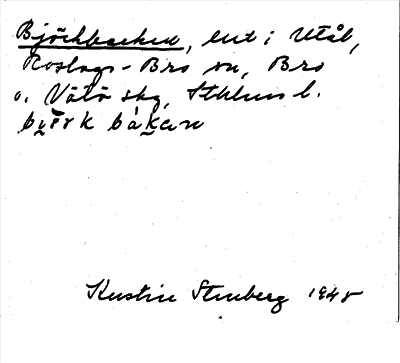 Björkbacken, lut i Utål,
Roslags-Bro sn, Bro
o. Vätö skg, Sthlms l.
by̤rk bàkan
Kerstin Stenberg 1948